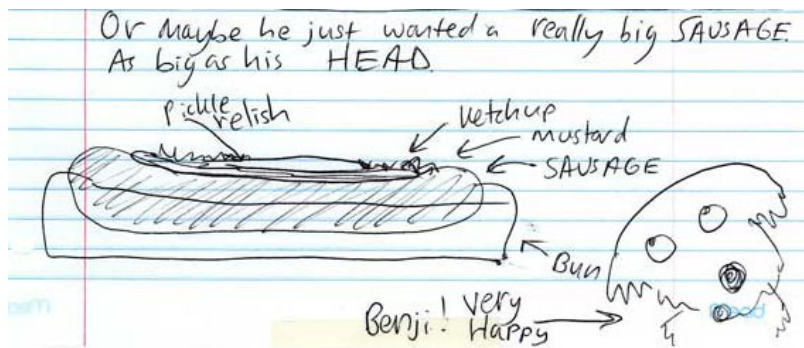 Or maybe he just wanted a really big SAUSAGE.
As big as his HEAD.
pickle relish
ketchup
mustard
SAUSAGE
Bun
Benji! Very Happy